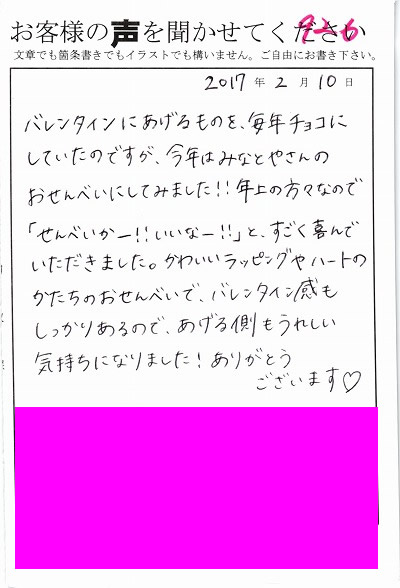 お客様の声を聞かせてください
926
文章でも箇条書きでもイラストでも構いません。ご自由にお書き下さい。
2017年2月10日
バレンタインにあげるものを、毎年チョコに
していたのですが、今年はみなとやさんの
おせんべいにしてみました!!年上の方々なので
「せんべいかー!!いいなー!!」と、すごく喜んで
いただきました。かわいいラッピングやハートの
かたちのおせんべいで、バレンタイン感も
しっかりあるので、あげる側もうれしい
気持ちになりました!ありがとう
ございます♡